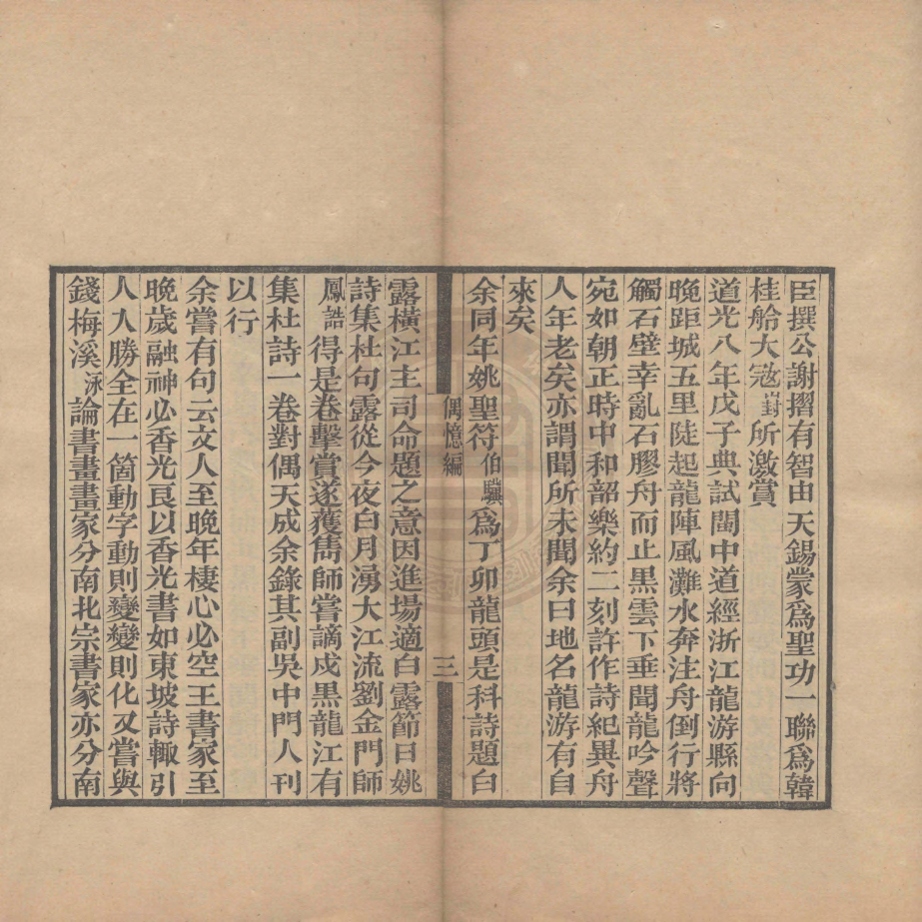 臣撰公謝摺有智由天錫蒙爲聖功一聯爲韓
桂舲大宼崶所激賞
道光八年戊子典試閩中道經浙江龍游縣向
晚距城五里陡起龍陣風灘水奔注舟倒行將
觸石壁幸亂石膠舟而止黑雲下垂聞龍吟聲
宛如朝正時中和韶樂約二刻許作詩紀異舟
人年老矣亦謂聞所未聞余曰地名龍游有自
來矣
余同年姚聖符伯驥爲丁卯龍頭是科詩題白
偶憶編
三
露橫江主司命題之意因進場適白露節日姚
詩集杜句露從今夜白月湧大江流劉金門師
鳳誥得是卷擊賞遂獲雋師嘗謫戍黑龍江有
集杜詩一卷對偶天成余錄其副吳中門人刊
以行
余嘗有句云文人至晚年棲心必空王書家至
晚歲融神必香光良以香光書如東坡詩輙引
人入勝全在一箇動字動則變變則化又嘗與
錢梅溪泳論書畫畫家分南北宗書家亦分南